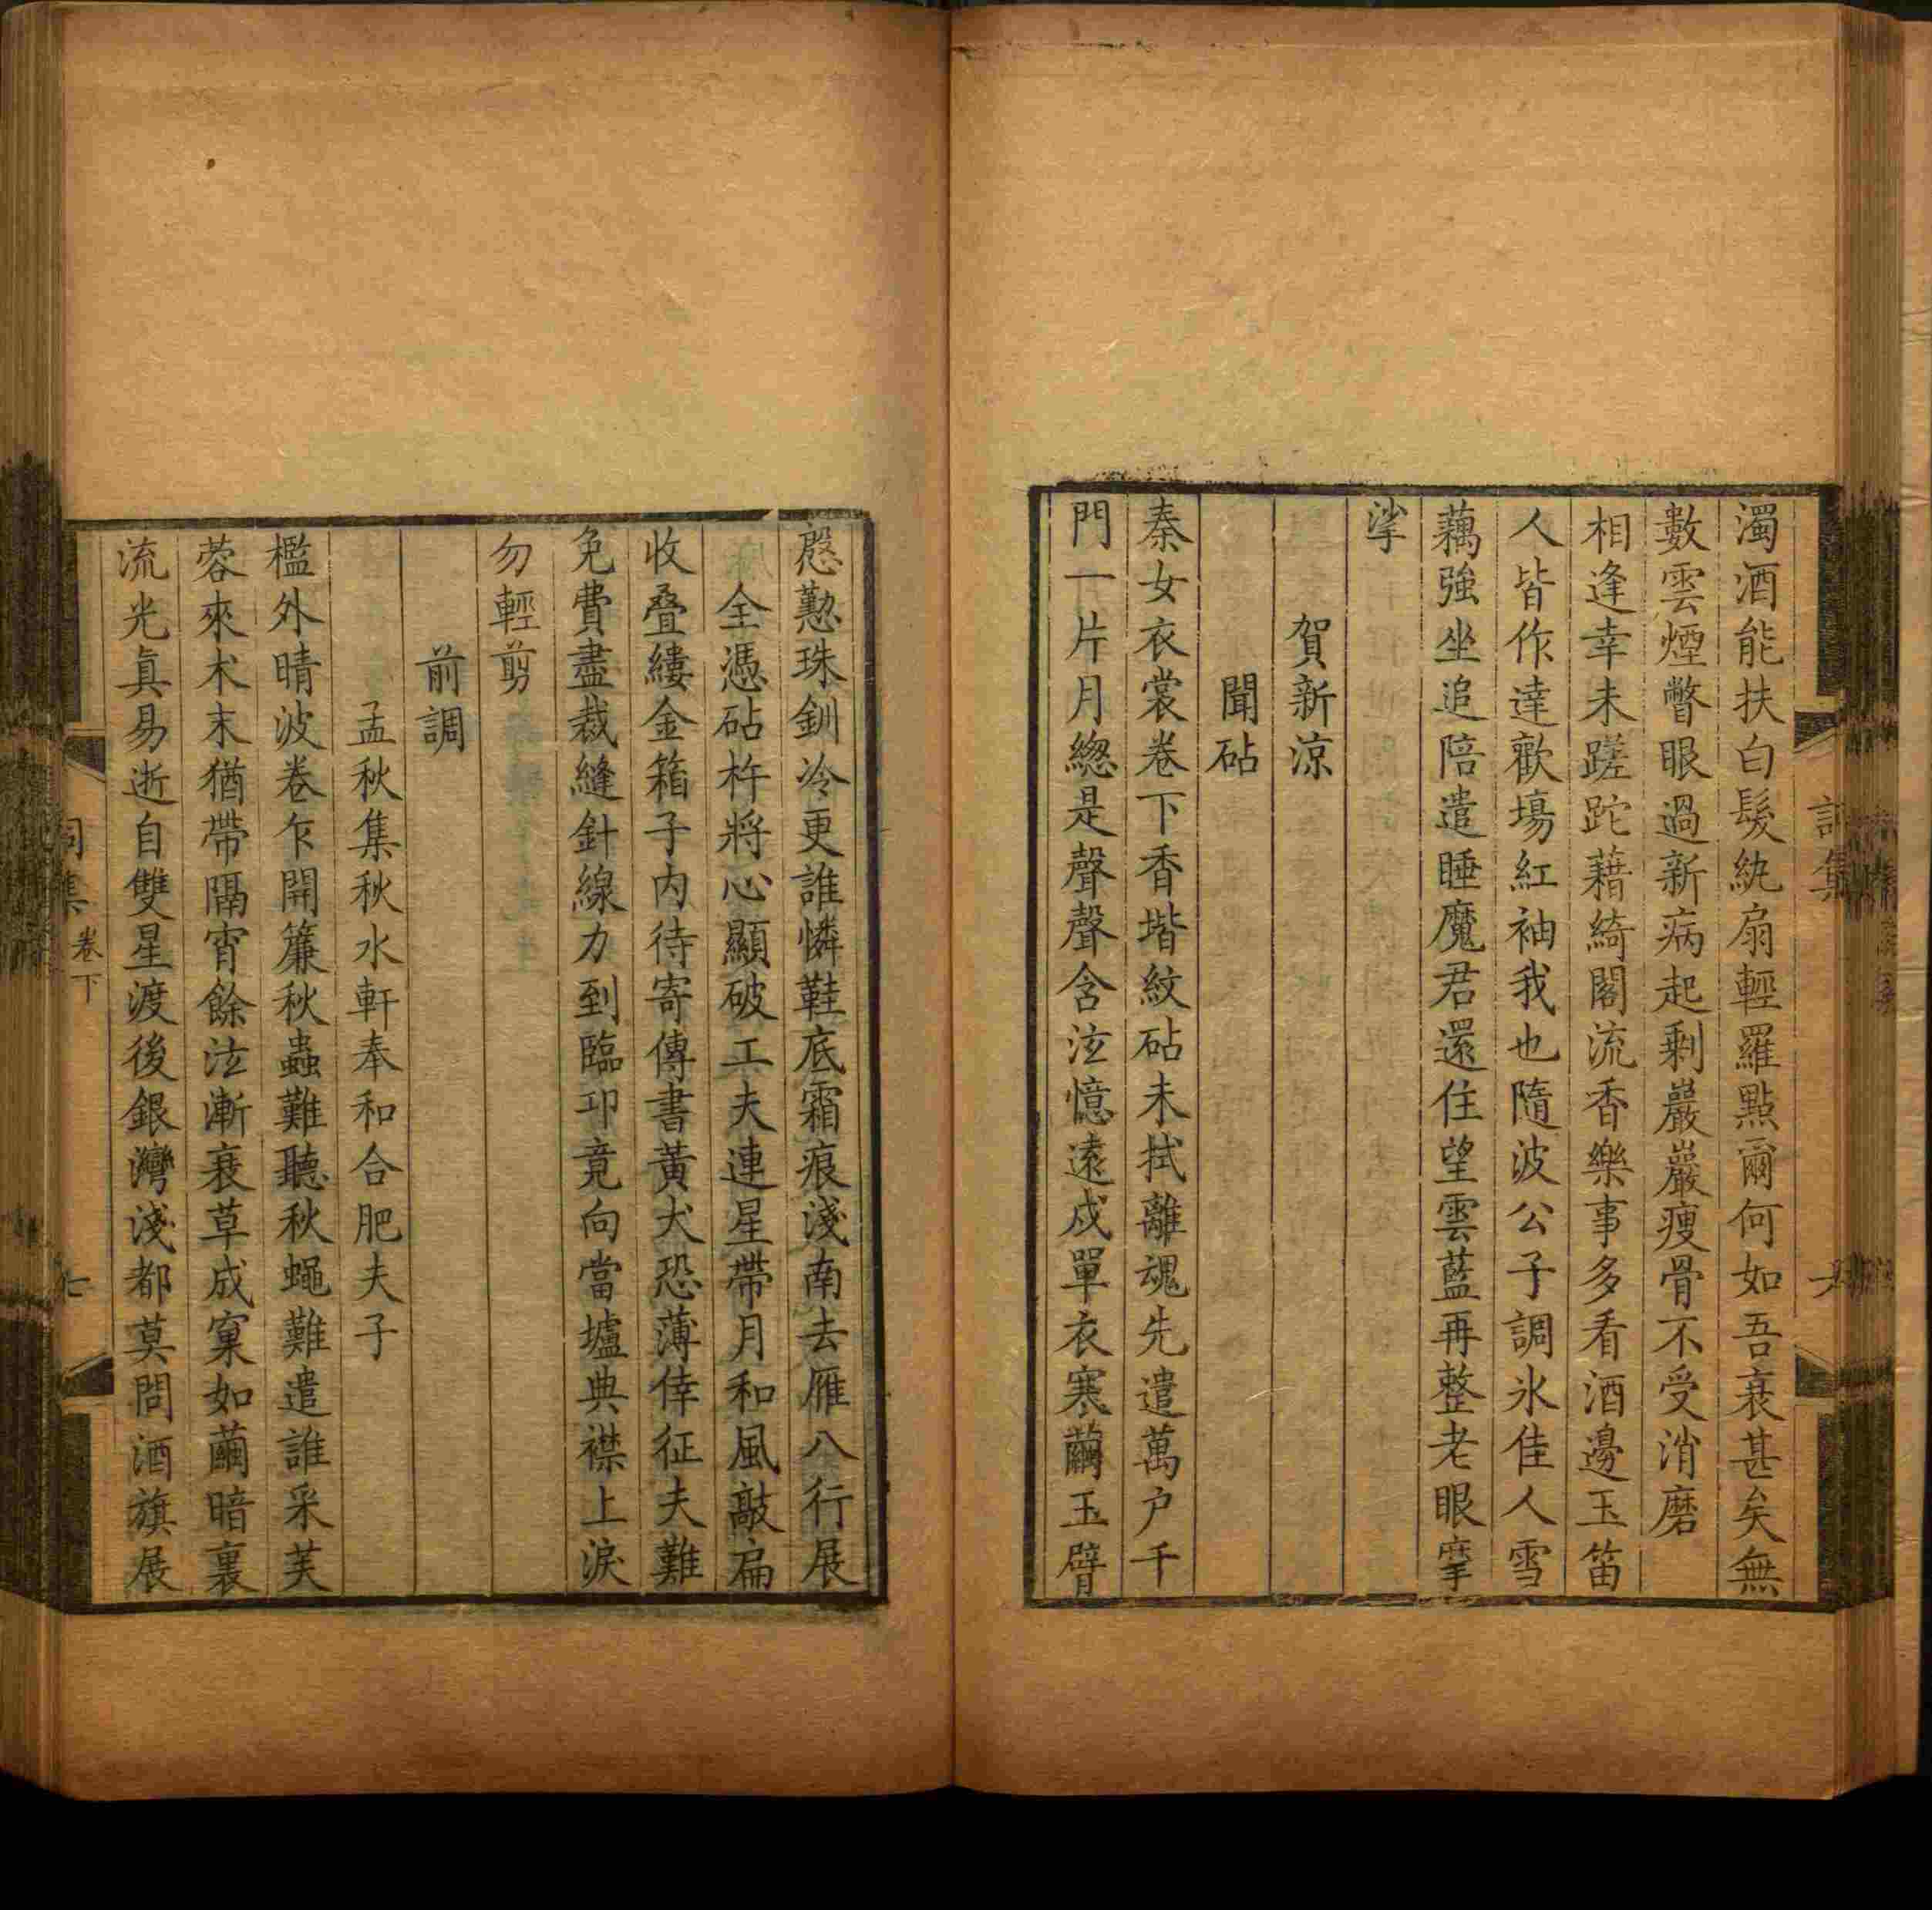 濁酒能扶白髮紈扇輕羅點爾何如吾衰甚矣無
數雲煙瞥眼過新病起剩巖巖瘦骨不受消磨
相逢幸未蹉跎藉綺閣流香樂事多看酒邊玉笛
人皆作達歡場紅袖我也隨波公子調氷佳人雪
藕強坐追陪遣睡魔君還住望雲藍再整老眼摩
挲
賀新涼
聞砧
秦女衣裳卷下香堦紋砧未拭離魂先遣萬户千
門一片月總是聲聲含泣憶遠戍單衣寒繭玉臂
慇懃珠釧冷更誰憐鞋底霜痕淺南去雁八行展
全憑砧杵將心顯破工夫連星帶月和風敲扁
收叠縷金箱子內待寄傳書黃犬恐薄倖征夫難
免費盡裁縫針線力到臨卭竟向當壚典襟上淚
勿輕剪
前調
孟秋集秋水軒奉和合肥夫子
檻外晴波卷乍開簾秋蟲難聽秋蠅難遣誰采芙
蓉來木末猶帶隔宵餘泣漸衰草成窠如繭暗裏
流光真易逝自雙星渡後銀灣淺都莫問酒旗展
詞集
卷下
七